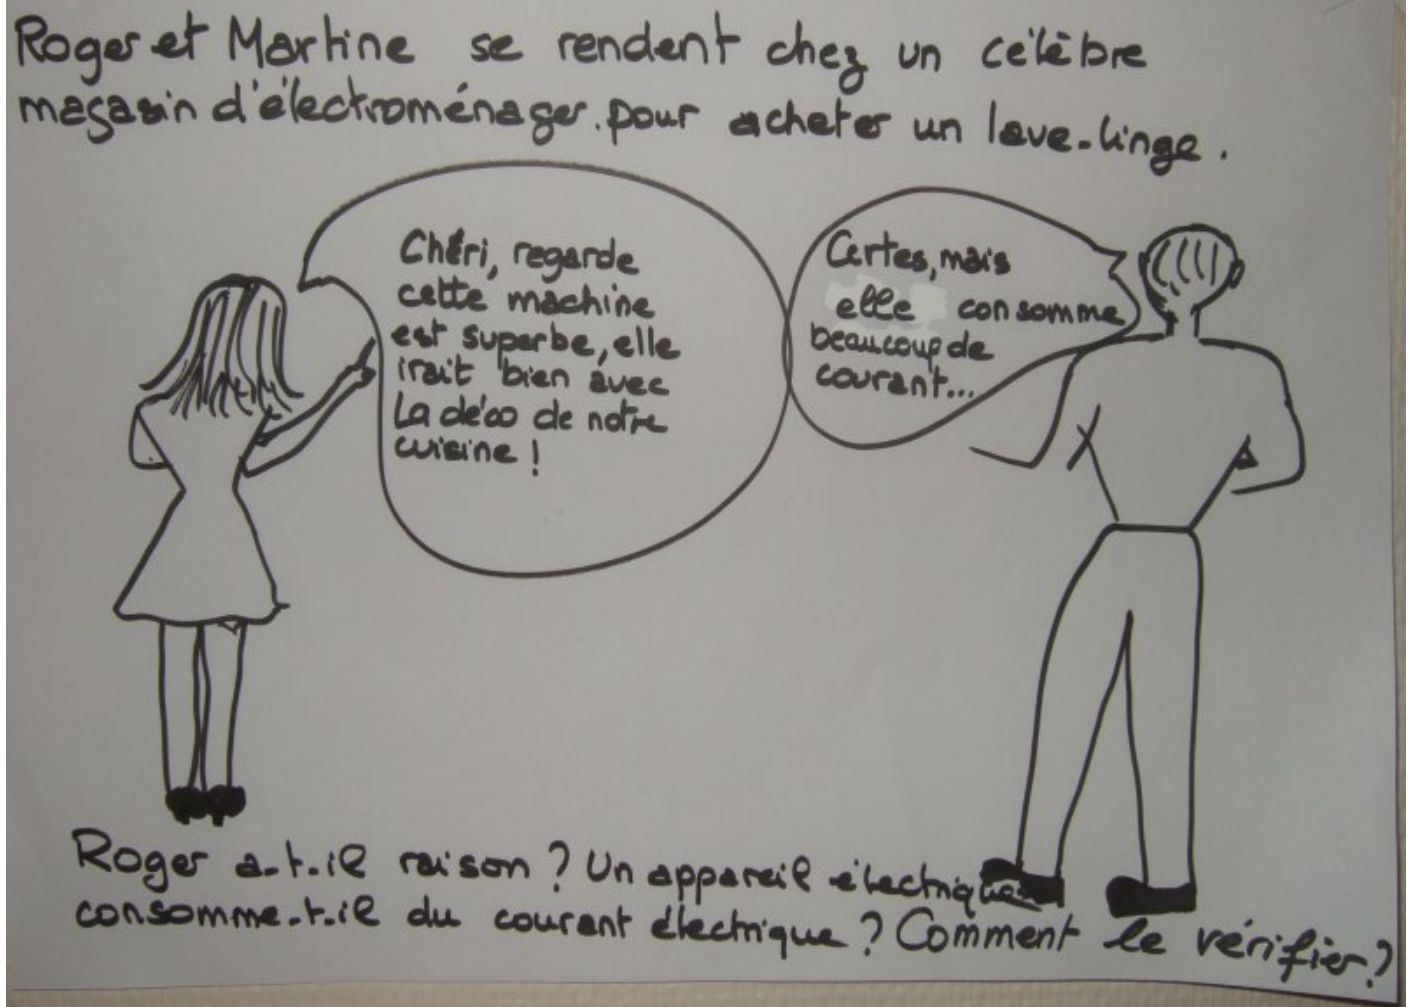 Roger et Martine se rendent chez un célèbre
magasin d'électroménager.pour acheter un lave-linge.
Chéri, regarde
cette machine
est superbe, elle
irait bien avec
La déco de notre
cuisine !
Certes, mais
elle consomme
beaucoup de
courant...
Roger a-t-il raison ? Un appareil électrique
consomme-t-il du courant électrique ? Comment le vérifier ?